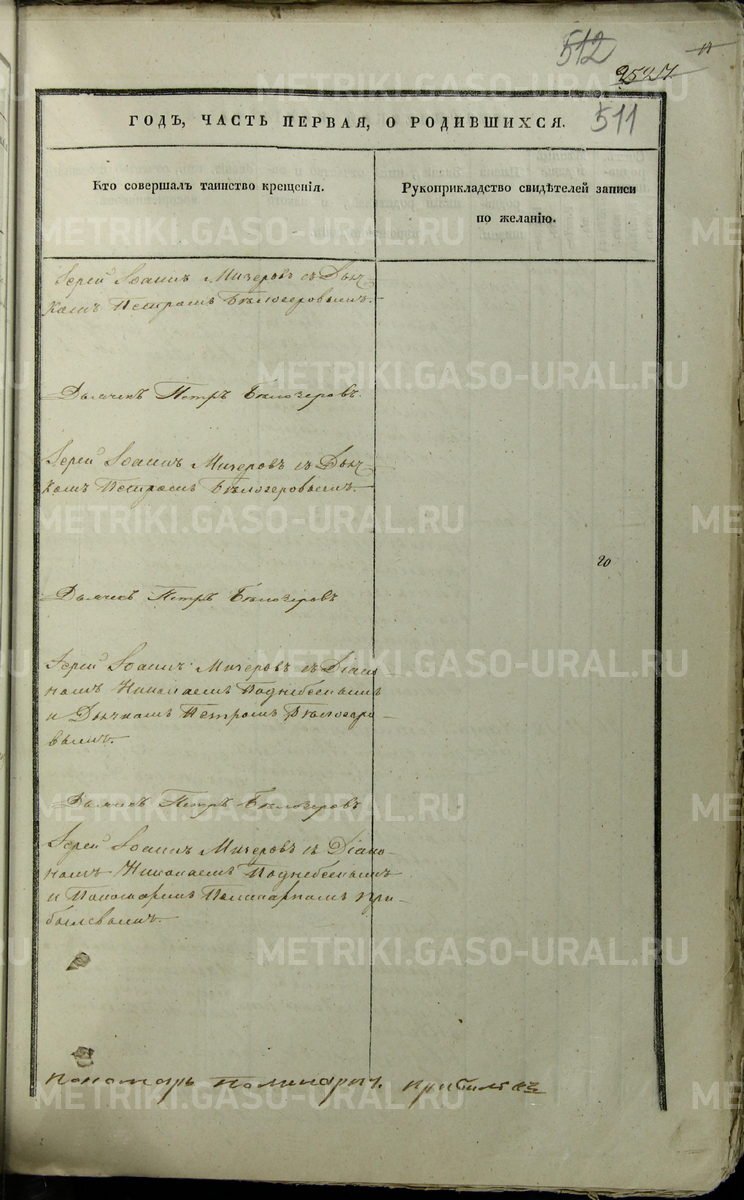 512
2527
511
ГОДЪ, ЧАСТЬ ПЕРВАЯ, О РОДИВШИХСЯ.
Кто совершалъ таинство крещенія.
Рукоприкладство свидѣтелей записи
по желанію.
Іерей Іоаннъ Мизеровъ съ Дьяч-
комъ Петромъ Бѣлозеровымъ.
Дьячекъ Петръ Бѣлозеровъ.
Іерей Іоаннъ Мизеровъ съ Дьяч-
комъ Петромъ Бѣлозеровымъ.
20
Дьячекъ Петръ Бѣлозеровъ
Іерей Іоаннъ Мизеровъ съ Діако-
номъ Николаемъ Поднебеснымъ
и Дьячкомъ Петромъ Бѣлозеро-
вымъ.
Дьячекъ Петръ Бѣлозеровъ
Іерей Іоаннъ Мизеровъ съ Діако-
номъ Николаемъ Поднебеснымъ
и Пономаремъ Поликарпомъ При-
былевымъ.
Пономарь Поликарпъ Прибылевъ
METRIKI.GASO-URAL.RU